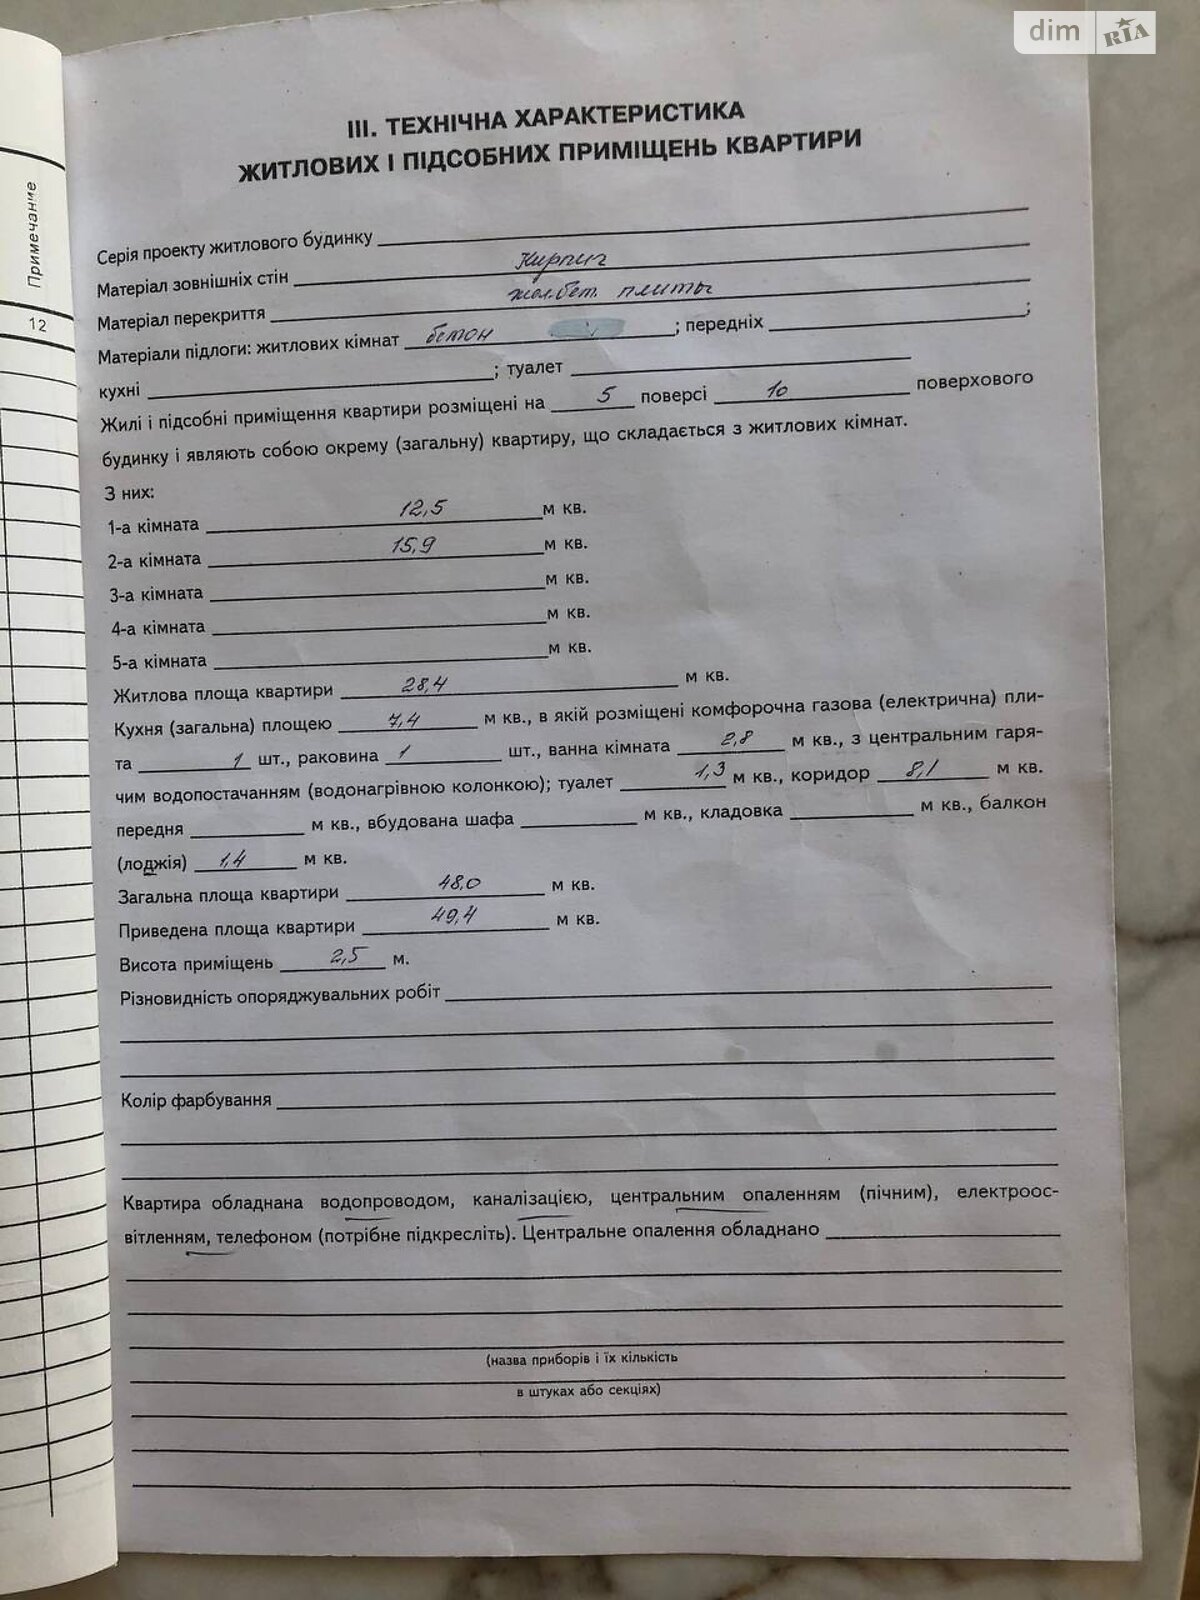 dim RIA
Примечание
12
III. ТЕХНІЧНА ХАРАКТЕРИСТИКА
ЖИТЛОВИХ І ПІДСОБНИХ ПРИМІЩЕНЬ КВАРТИРИ
Серія проекту житлового будинку
Матеріал зовнішніх стін Кирпич
Матеріал перекриття жел.бет. плиты
Матеріали підлоги: житлових кімнат бетон ; передніх ;
кухні ; туалет
Жилі і підсобні приміщення квартири розміщені на 5 поверсі 10 поверхового
будинку і являють собою окрему (загальну) квартиру, що складається з житлових кімнат.
З них:
1-а кімната 12,5 м кв.
2-а кімната 15,9 м кв.
3-а кімната м кв.
4-а кімната м кв.
5-а кімната м кв.
Житлова площа квартири 28,4 м кв.
Кухня (загальна) площею 7,4 м кв., в якій розміщені комфорочна газова (електрична) пли-
та 1 шт., раковина 1 шт., ванна кімната 2,8 м кв., з центральним гаря-
чим водопостачанням (водонагрівною колонкою); туалет 1,3 м кв., коридор 8,1 м кв.
передня м кв., вбудована шафа м кв., кладовка м кв., балкон
(лоджія) 1,4 м кв.
Загальна площа квартири 48,0 м кв.
Приведена площа квартири 49,4 м кв.
Висота приміщень 2,5 м.
Різновидність опоряджувальних робіт
Колір фарбування
Квартира обладнана водопроводом, каналізацією, центральним опаленням (пічним), електроос-
вітленням, телефоном (потрібне підкресліть). Центральне опалення обладнано
(назва приборів і їх кількість
в штуках або секціях)